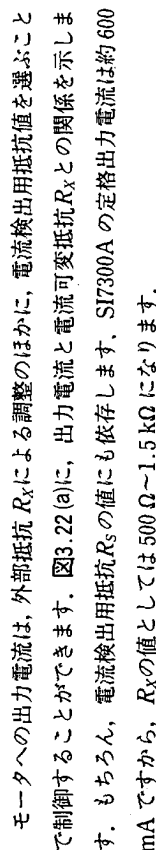 モータへの出力電流は,外部抵抗 RXによる調整のほかに,電流検出用抵抗値を選ぶこと
で制御することができます.図3.22(a)に,出力電流と電流可変抵抗RXとの関係を示しま
す.もちろん,電流検出用抵抗RSの値にも依存します.SI7300Aの定格出力電流は約600
mAですから,RXの値としては500Ω~1.5kΩになります.